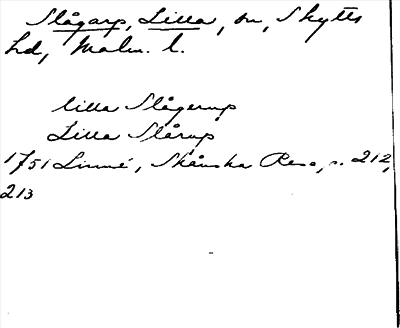 Slågarp, Lilla, sn, Skytts
hd, Malm. l.
Lilla Slågerup
Lilla Slårup
1751 Linné, Skånska Resa, s. 212,
213